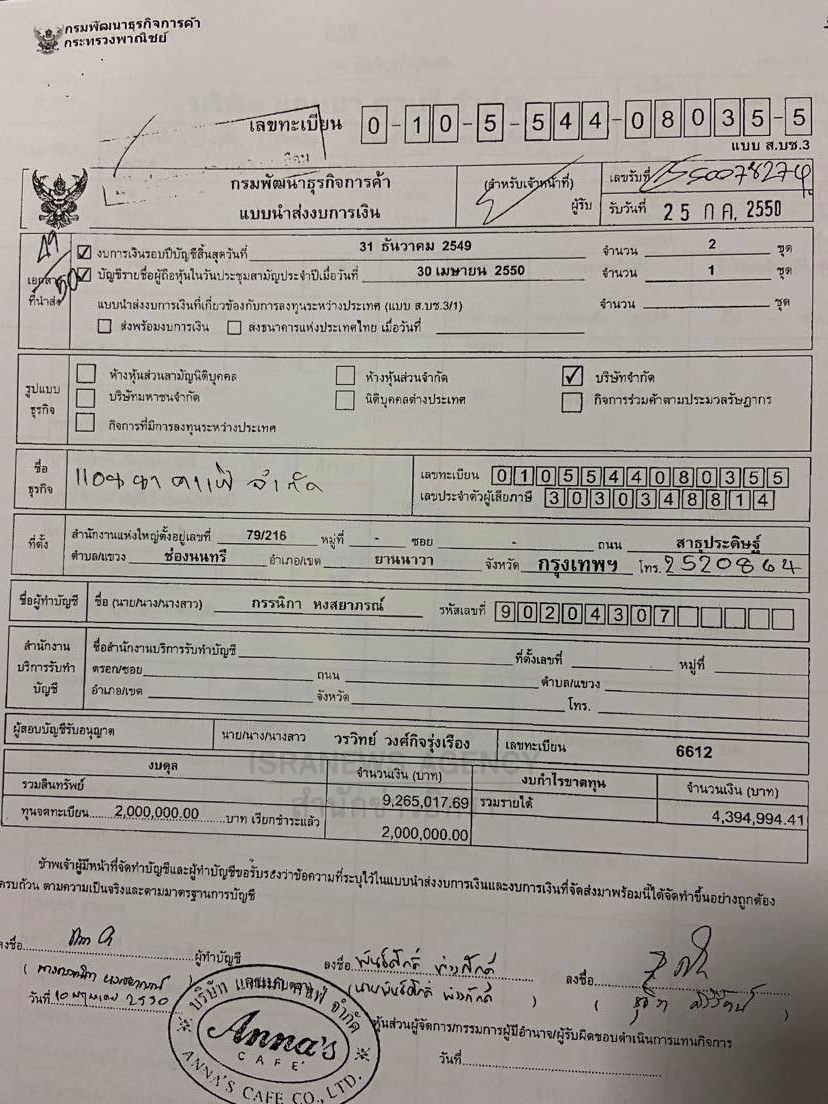 กรมพัฒนาธุรกิจการค้า
กระทรวงพาณิชย์
เลขทะเบียน 0-10-5-544-08035-5
แบบ ส.บช.3
กรมพัฒนาธุรกิจการค้า
แบบนำส่งงบการเงิน
(สำหรับเจ้าหน้าที่)
ผู้รับ
เลขรับที่
รับวันที่ 25 ก.ค. 2550
เอกสาร
ที่นำส่ง
งบการเงินรอบปีบัญชีสิ้นสุดวันที่ 31 ธันวาคม 2549 จำนวน 2 ชุด
บัญชีรายชื่อผู้ถือหุ้นในวันประชุมสามัญประจำปีเมื่อวันที่ 30 เมษายน 2550 จำนวน 1 ชุด
แบบนำส่งงบการเงินที่เกี่ยวข้องกับการลงทุนระหว่างประเทศ (แบบ ส.บช.3/1) จำนวน ชุด
ส่งพร้อมงบการเงิน ส่งธนาคารแห่งประเทศไทย เมื่อวันที่
รูปแบบ
ธุรกิจ
ห้างหุ้นส่วนสามัญนิติบุคคล ห้างหุ้นส่วนจำกัด บริษัทจำกัด
บริษัทมหาชนจำกัด นิติบุคคลต่างประเทศ กิจการร่วมค้าตามประมวลรัษฎากร
กิจการที่มีการลงทุนระหว่างประเทศ
ชื่อ
ธุรกิจ
แอนนา คาเฟ่ จำกัด
เลขทะเบียน 0105544080355
เลขประจำตัวผู้เสียภาษี 3030348814
ที่ตั้ง
สำนักงานแห่งใหญ่ตั้งอยู่เลขที่ 79/216 หมู่ที่ - ซอย - ถนน สาธุประดิษฐ์
ตำบล/แขวง ช่องนนทรี อำเภอ/เขต ยานนาวา จังหวัด กรุงเทพฯ โทร. 2520864
ชื่อผู้ทำบัญชี ชื่อ (นาย/นาง/นางสาว) กรรนิกา หงสยาภรณ์ รหัสเลขที่ 90204307
สำนักงาน
บริการรับทำ
บัญชี
ชื่อสำนักงานบริการรับทำบัญชี ที่ตั้งเลขที่ หมู่ที่
ตรอก/ซอย ถนน ตำบล/แขวง
อำเภอ/เขต จังหวัด โทร.
ผู้สอบบัญชีรับอนุญาต นาย/นาง/นางสาว วรวิทย์ วงศ์กิจรุ่งเรือง เลขทะเบียน 6612
ISRANEWS AGENCY
งบดุล จำนวนเงิน (บาท) งบกำไรขาดทุน จำนวนเงิน (บาท)
รวมสินทรัพย์ 9,265,017.69 รวมรายได้ 4,394,994.41
ทุนจดทะเบียน 2,000,000.00 บาท เรียกชำระแล้ว 2,000,000.00
ข้าพเจ้าผู้มีหน้าที่จัดทำบัญชีและผู้ทำบัญชีขอรับรองว่าข้อความที่ระบุไว้ในแบบนำส่งงบการเงินและงบการเงินที่จัดส่งมาพร้อมนี้ได้จัดทำขึ้นอย่างถูกต้อง
ครบถ้วน ตามความเป็นจริงและตามมาตรฐานการบัญชี
ลงชื่อ ผู้ทำบัญชี ลงชื่อ พันธ์ศักดิ์ ลงชื่อ
วันที่ 2550
หุ้นส่วนผู้จัดการ/กรรมการผู้มีอำนาจ/ผู้รับผิดชอบดำเนินการแทนกิจการ
วันที่
บริษัท แอนนา คาเฟ่ จำกัด
Anna's
CAFE'
ANNA'S CAFE CO., LTD.